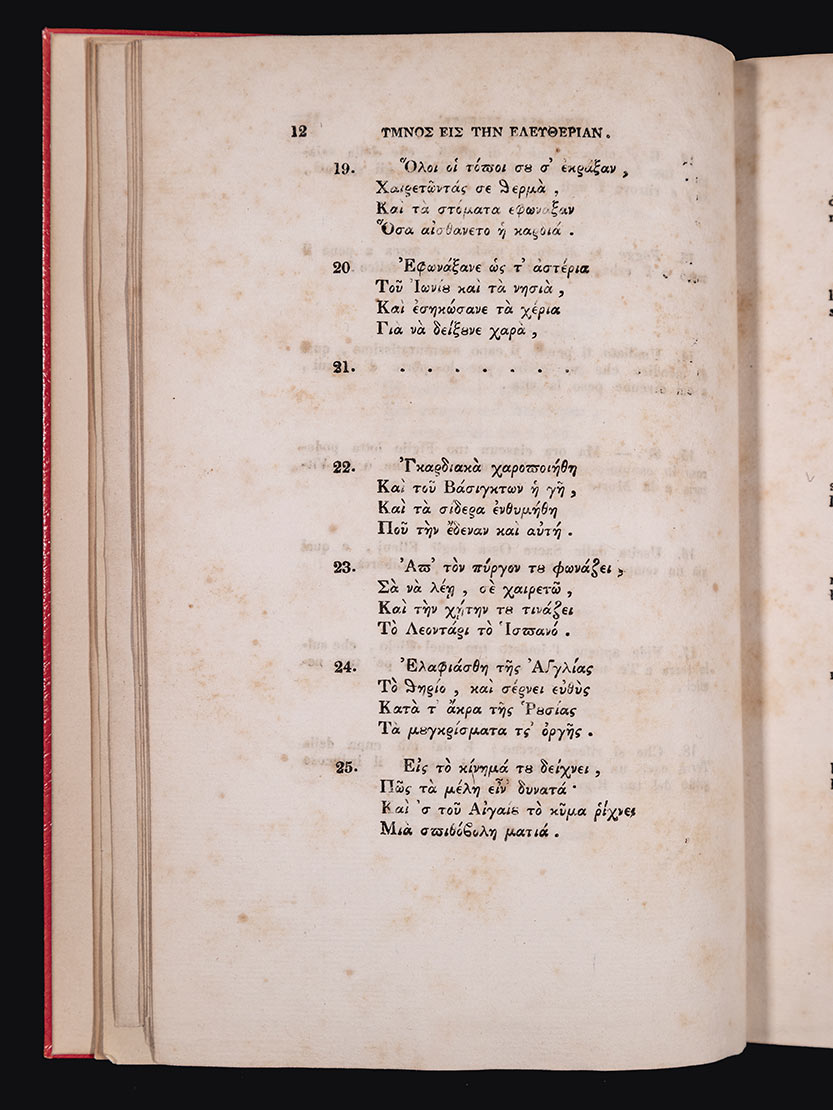 12 ΥΜΝΟΣ ΕΙΣ ΤΗΝ ΕΛΕΥΘΕΡΙΑΝ.
19. Ὅλοι οἱ τόποι σȣ σ' ἐκράξαν,
Χαιρετῶντάς σε θερμὰ,
Καὶ τὰ στόματα εφωναξαν
Ὅσα αἰσθανετο ἡ καρδιά.
20. Ἐφωνάξανε ὡς τ' ἀστέρια
Τοῦ Ἰωνίȣ καὶ τὰ νησιὰ,
Καὶ ἐσηκώσανε τὰ χέρια
Γιὰ νὰ δείξȣνε χαρὰ,
21. . . . . . . .
22. Ἐγκαρδιακὰ χαροποιήθη
Καὶ τοῦ Βάσιγκτων ἡ γῆ,
Καὶ τὰ σίδερα ἐνθυμήθη
Ποῦ τὴν ἔδεναν καὶ αὐτή.
23. Ἀπ' τὸν πύργον τȣ φωνάζει,
Σὰ νὰ λέῃ, σὲ χαιρετῶ,
Καὶ τὴν χήτην τȣ τινάζει
Τὸ Λεοντάρι τὸ Ἱσπανό.
24. Ἐλαφιάσθη τῆς Ἀγγλίας
Τὸ θηρίο, καὶ σέρνει εὐθὺς
Κατὰ τ' ἄκρα τῆς Ῥȣσίας
Τὰ μȣγκρίσματα τς' ὀργῆς.
25. Εἰς τὸ κίνημά τȣ δείχνει,
Πῶς τὰ μέλη εἶν' δυνατά·
Καὶ 'σ τοῦ Αἰγαίȣ τὸ κῦμα ῥίχνει
Μιὰ σπιθόβολη ματιά.